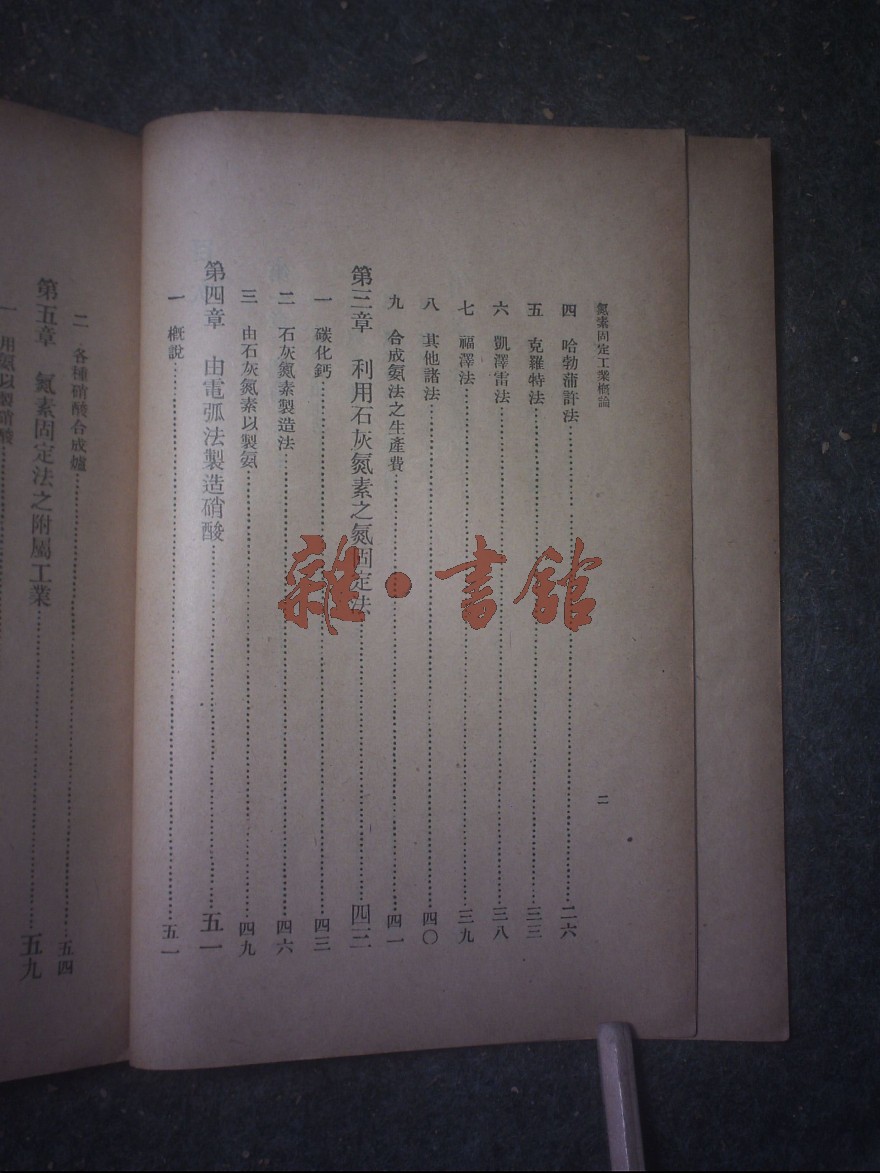 氮素固定工業概論
二
四 哈勃蒲許法 二六
五 克羅特法 三三
六 凱澤雷法 三八
七 福澤法 三九
八 其他諸法 四〇
九 合成氨法之生產費 四一
第三章 利用石灰氮素之氮固定法 四三
一 碳化鈣 四三
二 石灰氮素製造法 四六
三 由石灰氮素以製氨 四九
第四章 由電弧法製造硝酸 五一
一 概說 五一
二 各種硝酸合成爐 五四
第五章 氮素固定法之附屬工業 五九
一 用氨以製硝酸
雜·書館